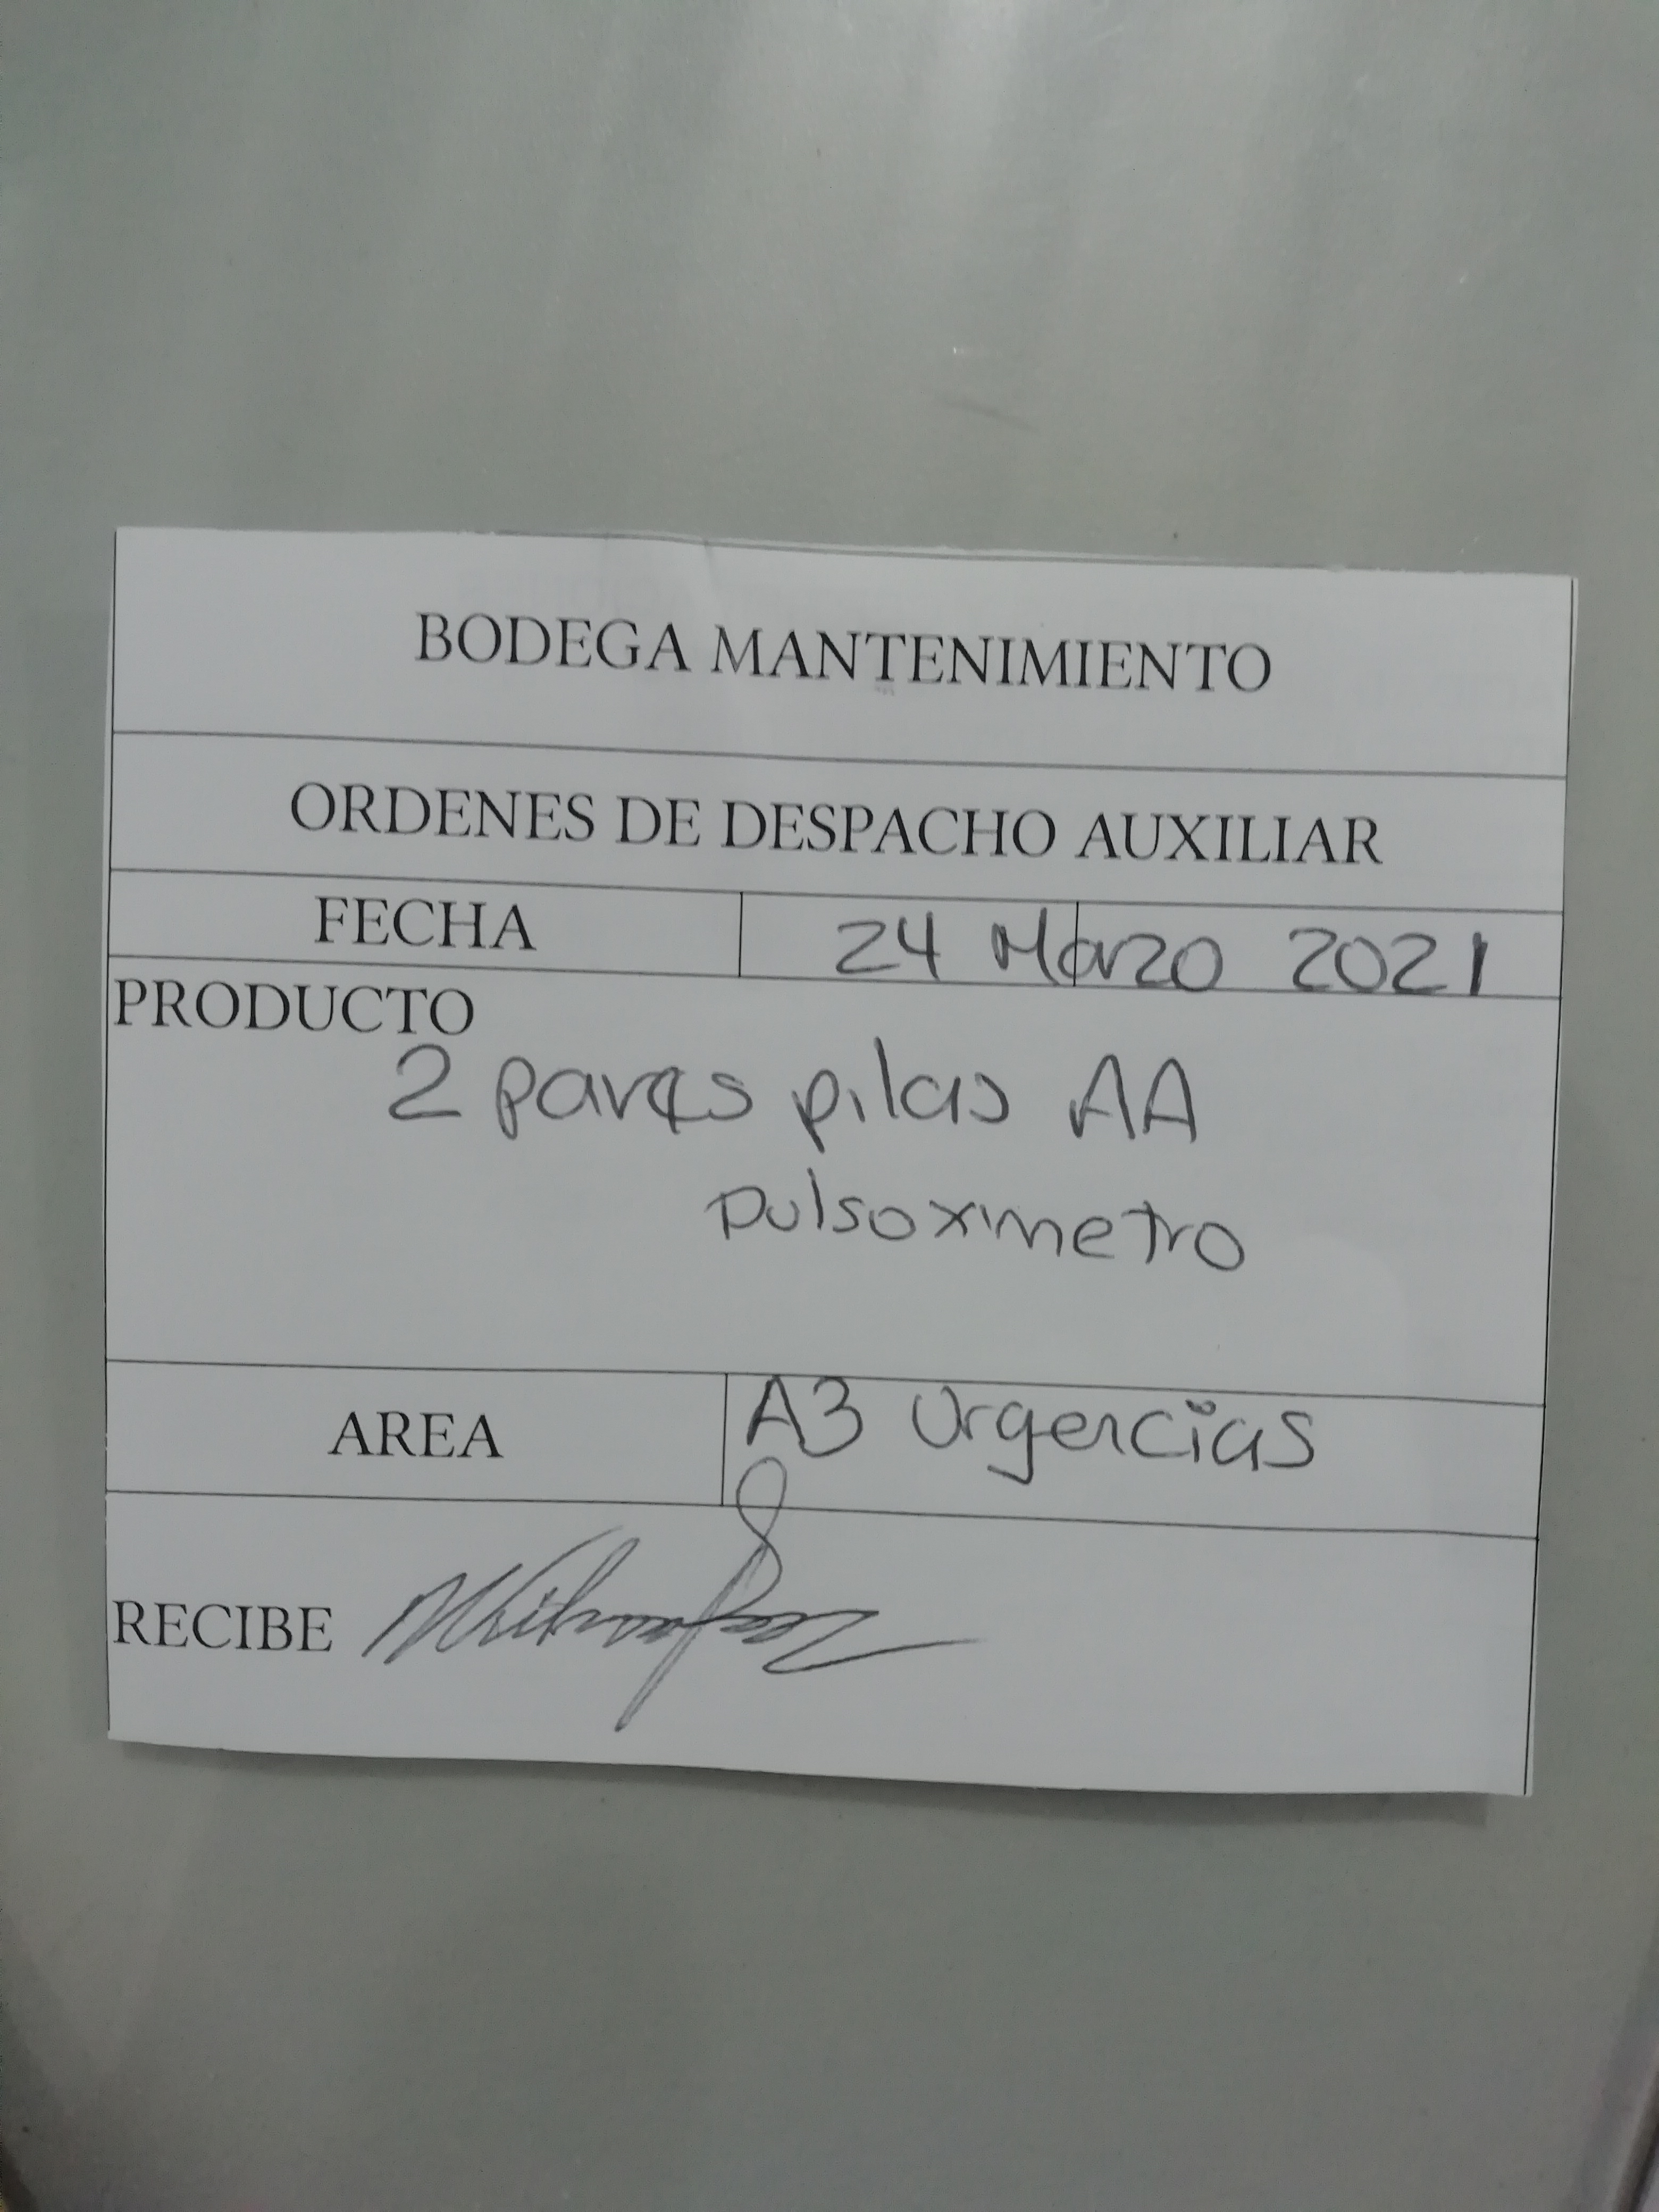 BODEGA MANTENIMIENTO
ORDENES DE DESPACHO AUXILIAR
FECHA 24 Marzo 2021
PRODUCTO
2 pares pilas AA
pulsoximetro
AREA A3 Urgencias
RECIBE